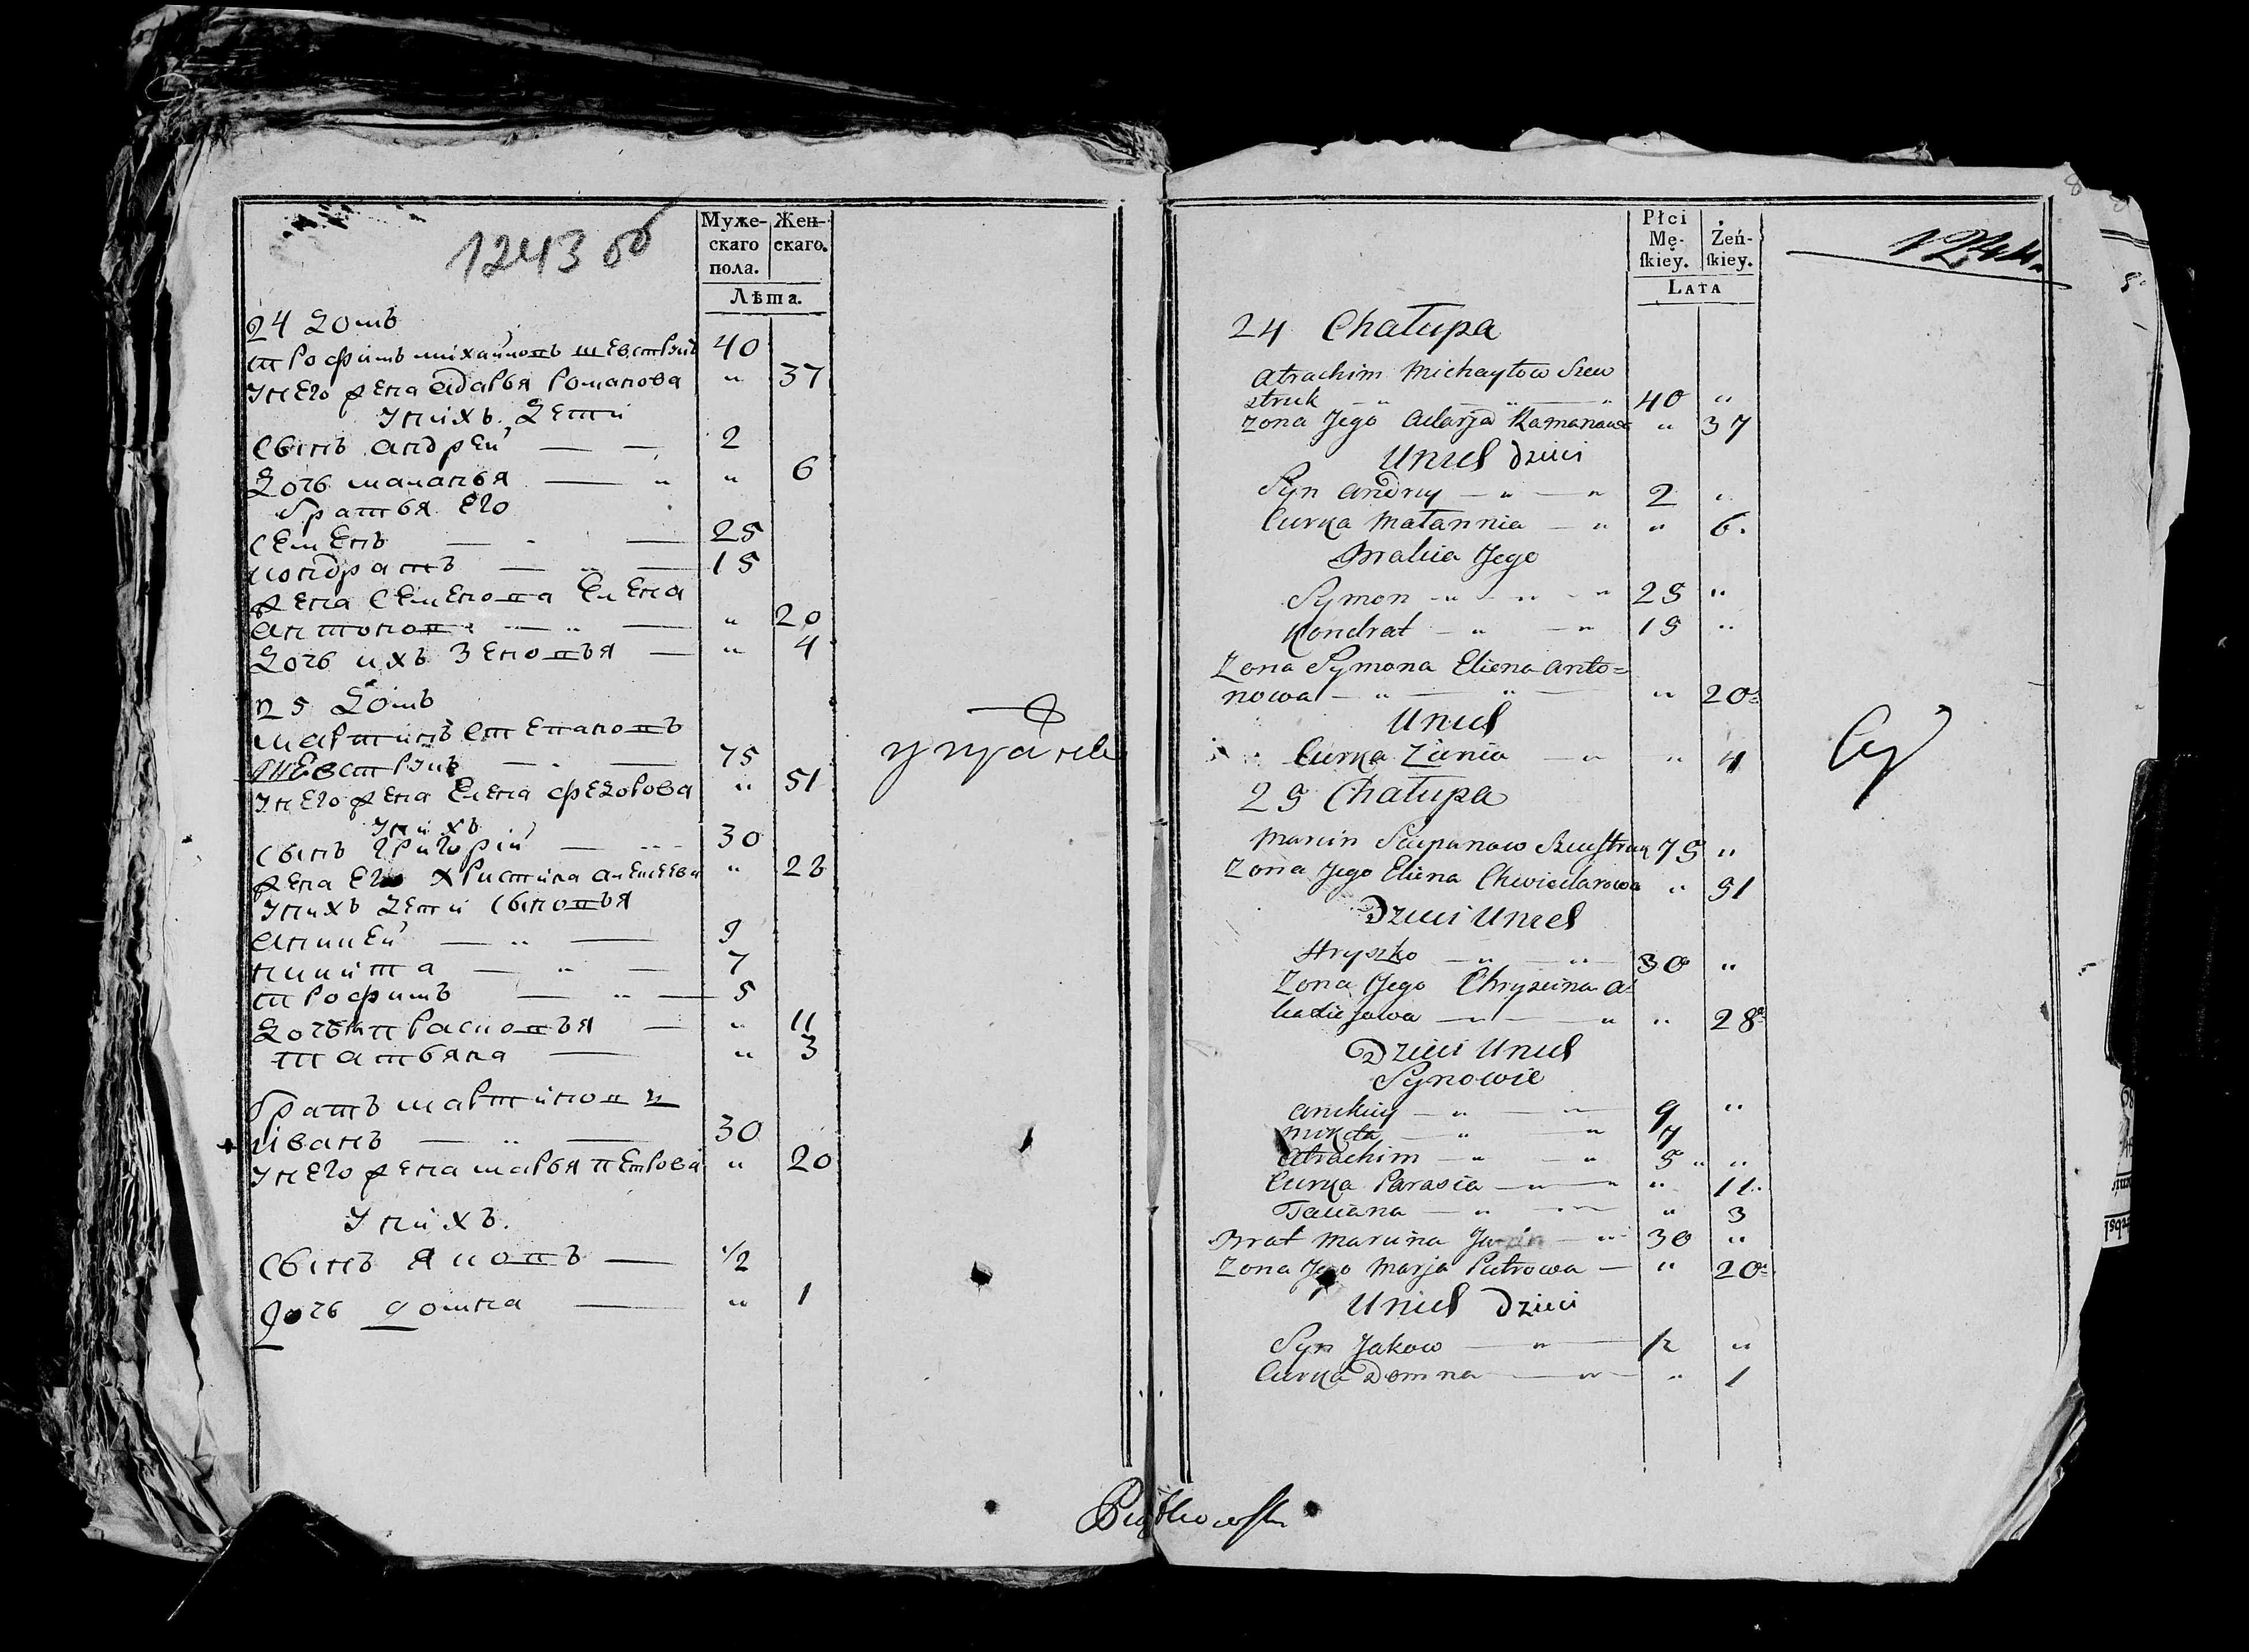 1243 об
Муже-
скаго
пола.
Жен-
скаго.
Лѣта.
24 Домъ
Трофимъ михайловъ шевструкъ 40
У него жена адарья Романова " 37
У нихъ дети
Сынъ андрей — — 2
Дочь маланья — " " 6
братья Его
Семенъ — " — 25
кондратъ — " — 15
жена Семенова Елена
антонова — " — " 20
Дочь ихъ Зеновья — " 4
25 Домъ
мартинъ степановъ
шевструкъ — " — 75
У него жена Елена федорова " 51
У нихъ
Сынъ григорий — 30
жена Его христина алексеева " 28
У нихъ дети Сыновья
аникей — " — 9
никита — " — 7
трофимъ — " — 5
Дочь прасковья — " 11
татьяна — " 3
братъ мартиновъ
иванъ — " — 30
У него жена марья петрова " 20
У нихъ.
Сынъ яковъ — 1/2
Дочь домна — " 1
Płci
Mę-
ſkiey.
Żeń-
ſkiey.
LATA
1244.
24 Chałupa
Atrachim Michayłow Szew
struk — " — " 40 "
Zona Jego Adarja Ramanowa " 37
U nich dzieci
Syn Andrey — " — " 2 "
Curka Małannia — " " 6.
Bracia Jego
Symon — " — " — " 25 "
Kondrat — " — " 15 "
Zona Symona Eliena Anto=
nowa — " — " — " 20
U nich
Curka Zienia — " " 4
25 Chałupa
Marcin Sciepanow Szewstruk 75 "
Zona Jego Eliena Chwiedarowa " 51
Dzieci U nich
Hryszko — " — " 30 "
Zona Jego Chryscina A=
— " — " " 28
Dzieci U nich
Synowie
Anikiey — " — " 9 "
Mikita — " — " 7
Atrachim — " — " 5 " "
Curka Parasia — " — " " 11
Taciana — " — " " 3
Brat Marcina — " 30 "
Zona Jego Marja Piatrowa — " 20
U nich Dzieci
Syn Jakow — " — 1/2 "
Curka Domna — " — " 1